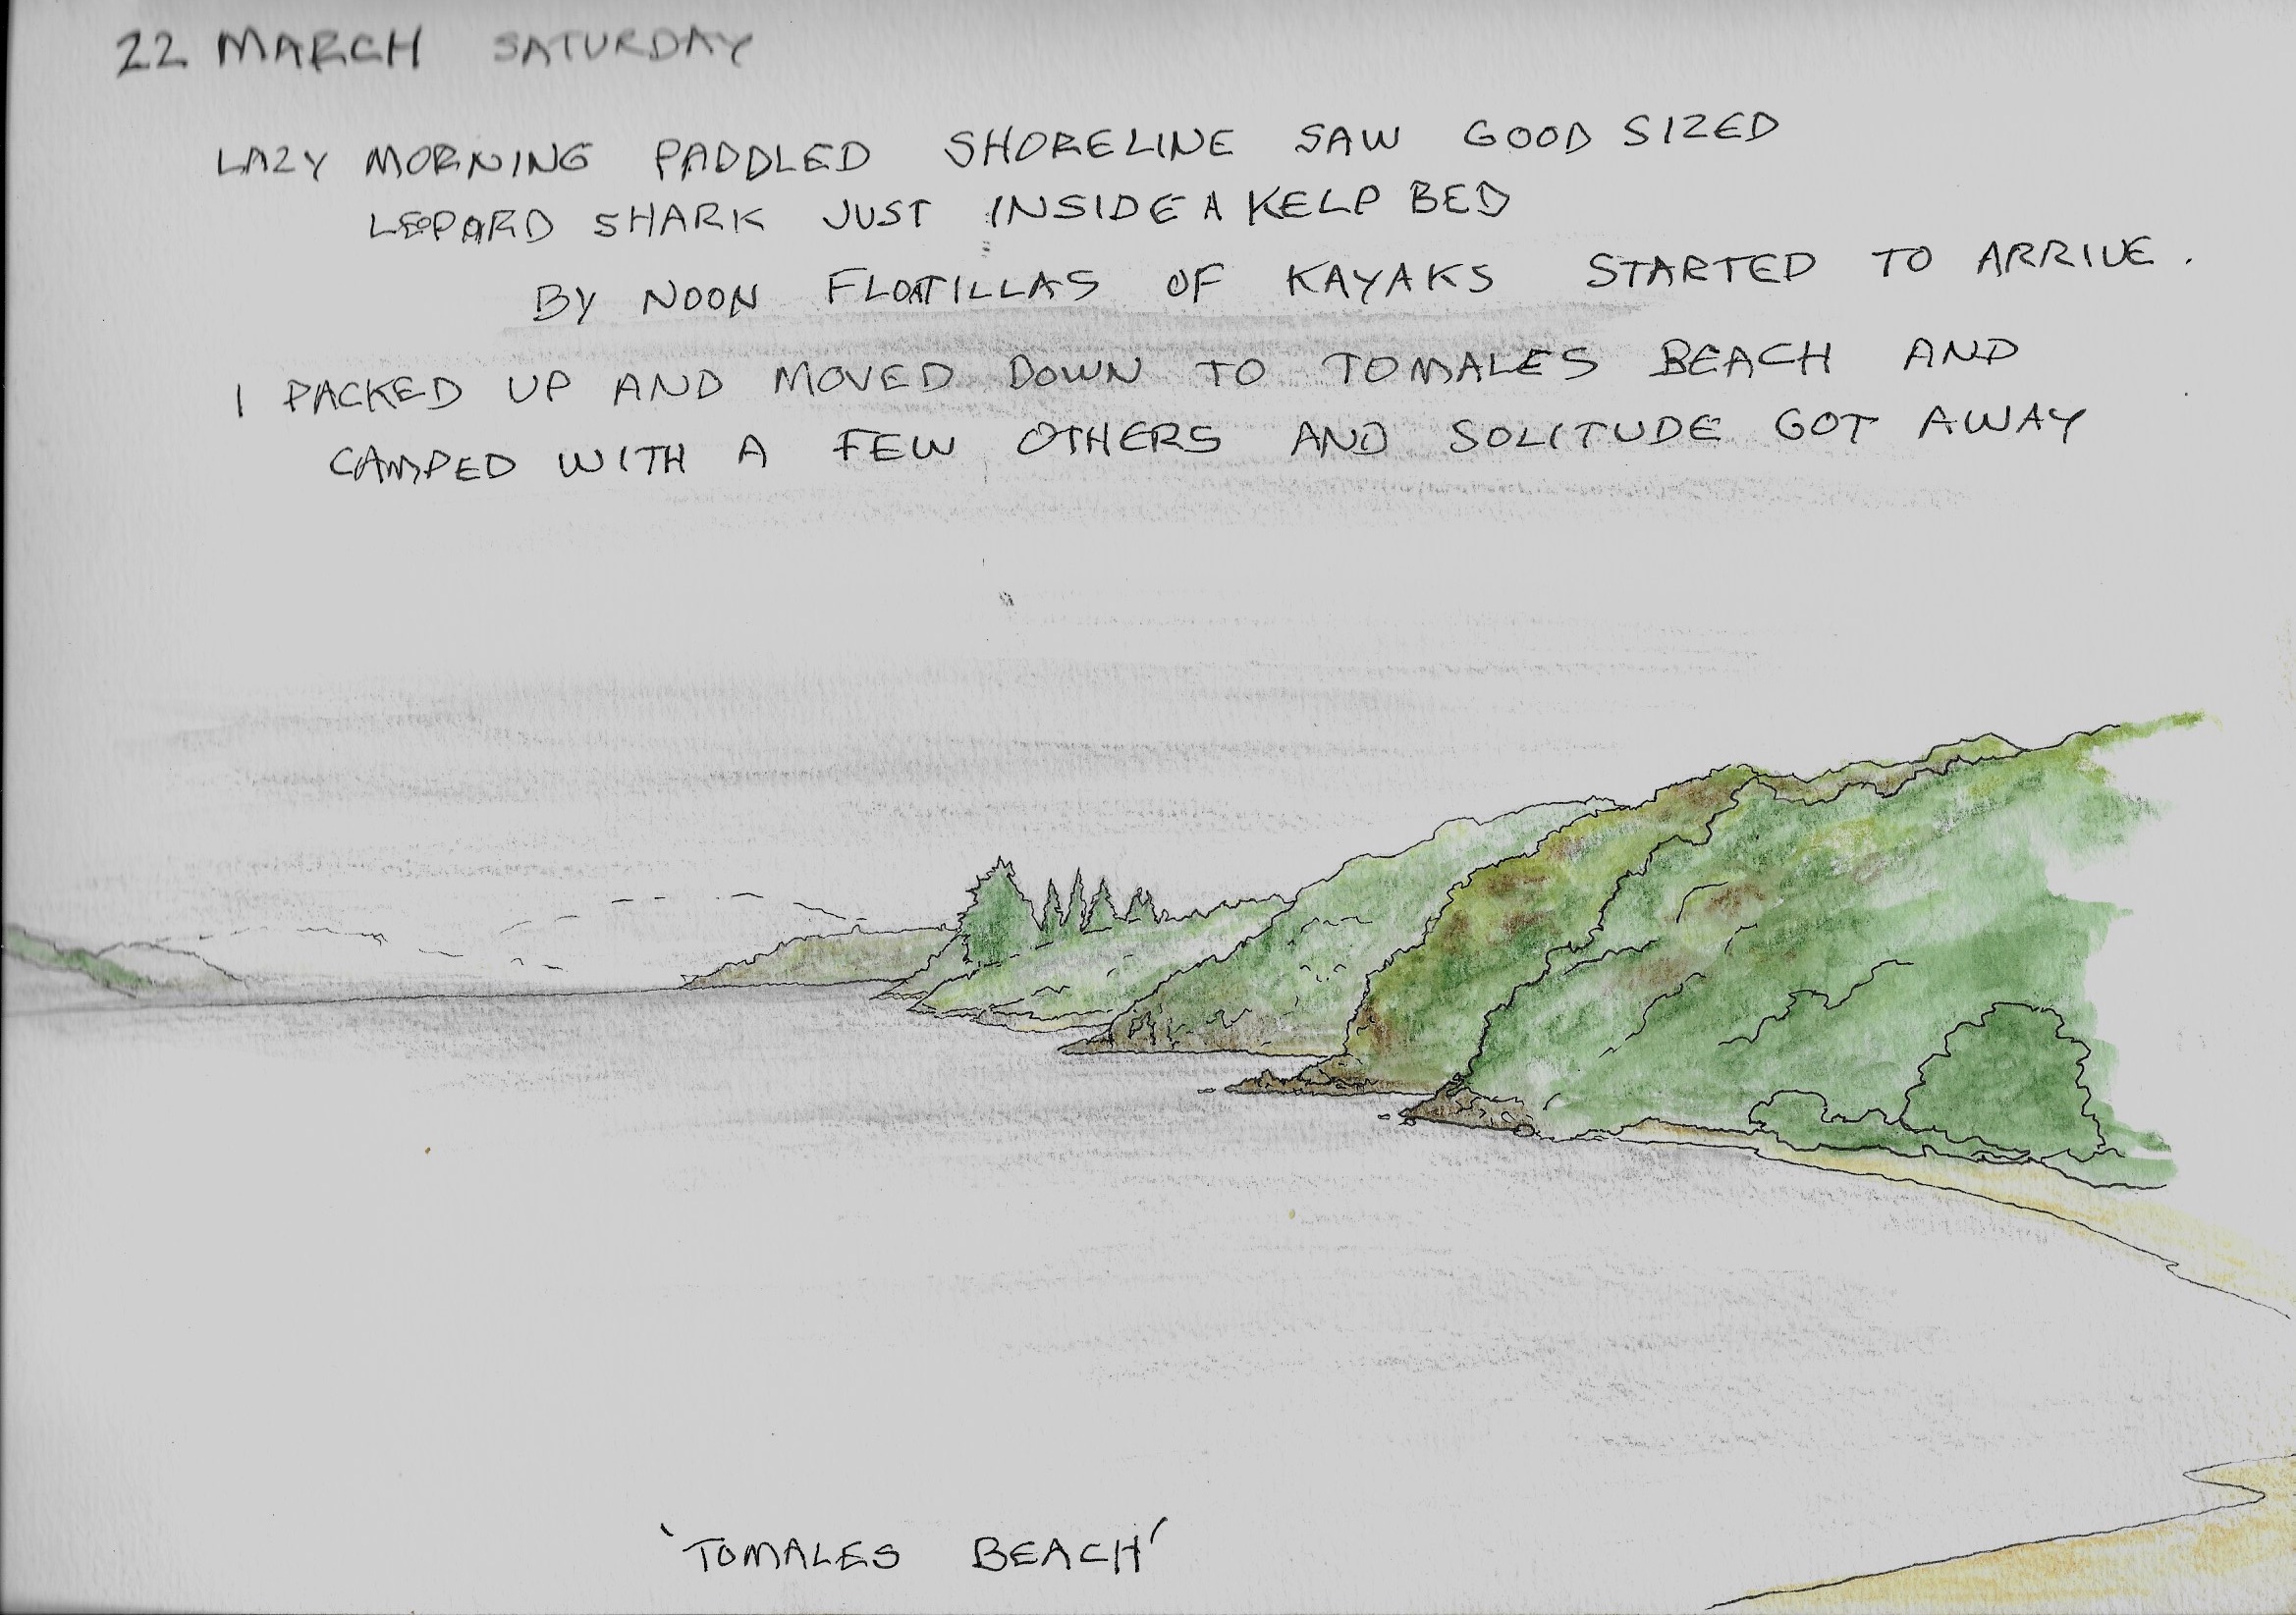 22 MARCH SATURDAY
LAZY MORNING PADDLED SHORELINE SAW GOOD SIZED
LEOPARD SHARK JUST INSIDE A KELP BED
BY NOON FLOATILLAS OF KAYAKS STARTED TO ARRIVE.
I PACKED UP AND MOVED DOWN TO TOMALES BEACH AND
CAMPED WITH A FEW OTHERS AND SOLITUDE GOT AWAY
'TOMALES BEACH'